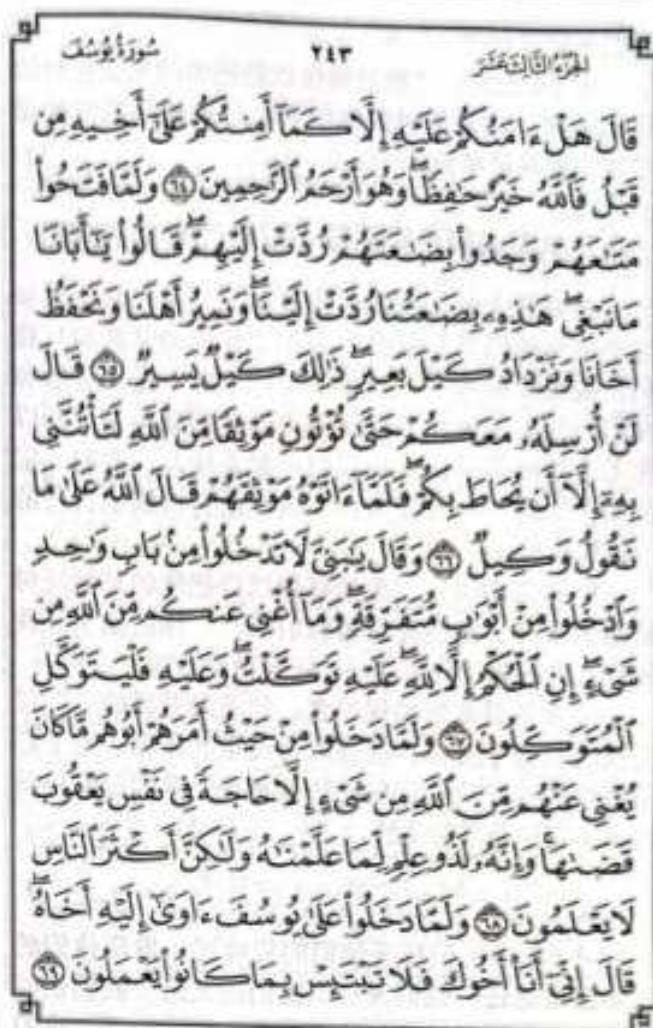 الجزء الثالث عشر ٢٤٣ سورة يوسف
قَالَ هَلْ ءَامَنُكُمْ عَلَيْهِ إِلَّا كَمَآ أَمِنتُكُمْ عَلَىٰٓ أَخِيهِ مِن
قَبْلُ فَٱللَّهُ خَيْرٌ حَٰفِظًا ۖ وَهُوَ أَرْحَمُ ٱلرَّٰحِمِينَ ٦٤ وَلَمَّا فَتَحُوا۟
مَتَٰعَهُمْ وَجَدُوا۟ بِضَٰعَتَهُمْ رُدَّتْ إِلَيْهِمْ ۖ قَالُوا۟ يَٰٓأَبَانَا
مَا نَبْغِى ۖ هَٰذِهِۦ بِضَٰعَتُنَا رُدَّتْ إِلَيْنَا ۖ وَنَمِيرُ أَهْلَنَا وَنَحْفَظُ
أَخَانَا وَنَزْدَادُ كَيْلَ بَعِيرٍ ۖ ذَٰلِكَ كَيْلٌ يَسِيرٌ ٦٥ قَالَ
لَنْ أُرْسِلَهُۥ مَعَكُمْ حَتَّىٰ تُؤْتُونِ مَوْثِقًا مِّنَ ٱللَّهِ لَتَأْتُنَّنِى
بِهِۦٓ إِلَّآ أَن يُحَاطَ بِكُمْ ۖ فَلَمَّآ ءَاتَوْهُ مَوْثِقَهُمْ قَالَ ٱللَّهُ عَلَىٰ مَا
نَقُولُ وَكِيلٌ ٦٦ وَقَالَ يَٰبَنِىَّ لَا تَدْخُلُوا۟ مِنۢ بَابٍ وَٰحِدٍ
وَٱدْخُلُوا۟ مِنْ أَبْوَٰبٍ مُّتَفَرِّقَةٍ ۖ وَمَآ أُغْنِى عَنكُم مِّنَ ٱللَّهِ مِن
شَىْءٍ ۖ إِنِ ٱلْحُكْمُ إِلَّا لِلَّهِ ۖ عَلَيْهِ تَوَكَّلْتُ ۖ وَعَلَيْهِ فَلْيَتَوَكَّلِ
ٱلْمُتَوَكِّلُونَ ٦٧ وَلَمَّا دَخَلُوا۟ مِنْ حَيْثُ أَمَرَهُمْ أَبُوهُم مَّا كَانَ
يُغْنِى عَنْهُم مِّنَ ٱللَّهِ مِن شَىْءٍ إِلَّا حَاجَةً فِى نَفْسِ يَعْقُوبَ
قَضَىٰهَا ۚ وَإِنَّهُۥ لَذُو عِلْمٍ لِّمَا عَلَّمْنَٰهُ وَلَٰكِنَّ أَكْثَرَ ٱلنَّاسِ
لَا يَعْلَمُونَ ٦٨ وَلَمَّا دَخَلُوا۟ عَلَىٰ يُوسُفَ ءَاوَىٰٓ إِلَيْهِ أَخَاهُ ۖ
قَالَ إِنِّىٓ أَنَا۠ أَخُوكَ فَلَا تَبْتَئِسْ بِمَا كَانُوا۟ يَعْمَلُونَ ٦٩